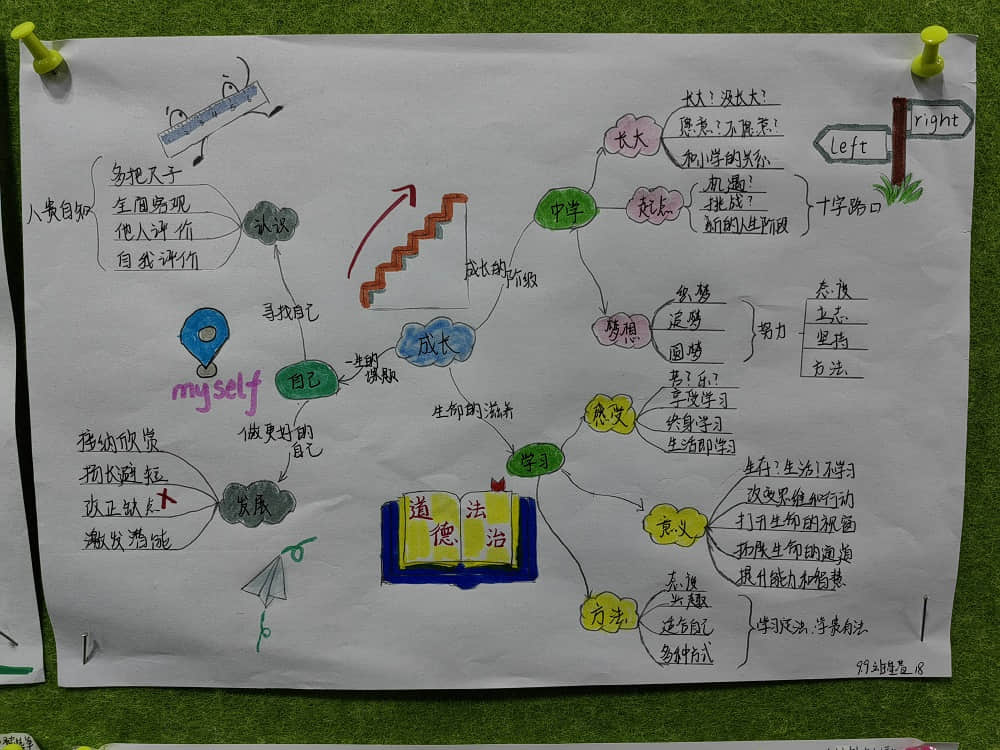 成长
成长的
阶级
中学
长大
长大？没长大？
愿意？不愿意？
和小学的关系
起点
机遇？
挑战？
新的人生阶段
十字路口
left
right
梦想
织梦
追梦
圆梦
努力
态度
立志
坚持
方法
生命的滋养
学习
感受
苦？乐？
享受学习
终身学习
生活即学习
意义
生存？生活？不学习
改变思维和行动
打开生命的视窗
拓展生命的通道
提升能力和智慧
方法
态度
兴趣
适合自己
多种方式
学贵有法
一生的
课题
自己
寻找自己
认识
多把尺子
全面客观
他人评价
自我评价
人贵自知
myself
做更好的
自己
发展
接纳欣赏
扬长避短
改正缺点
激发潜能
道德
法治